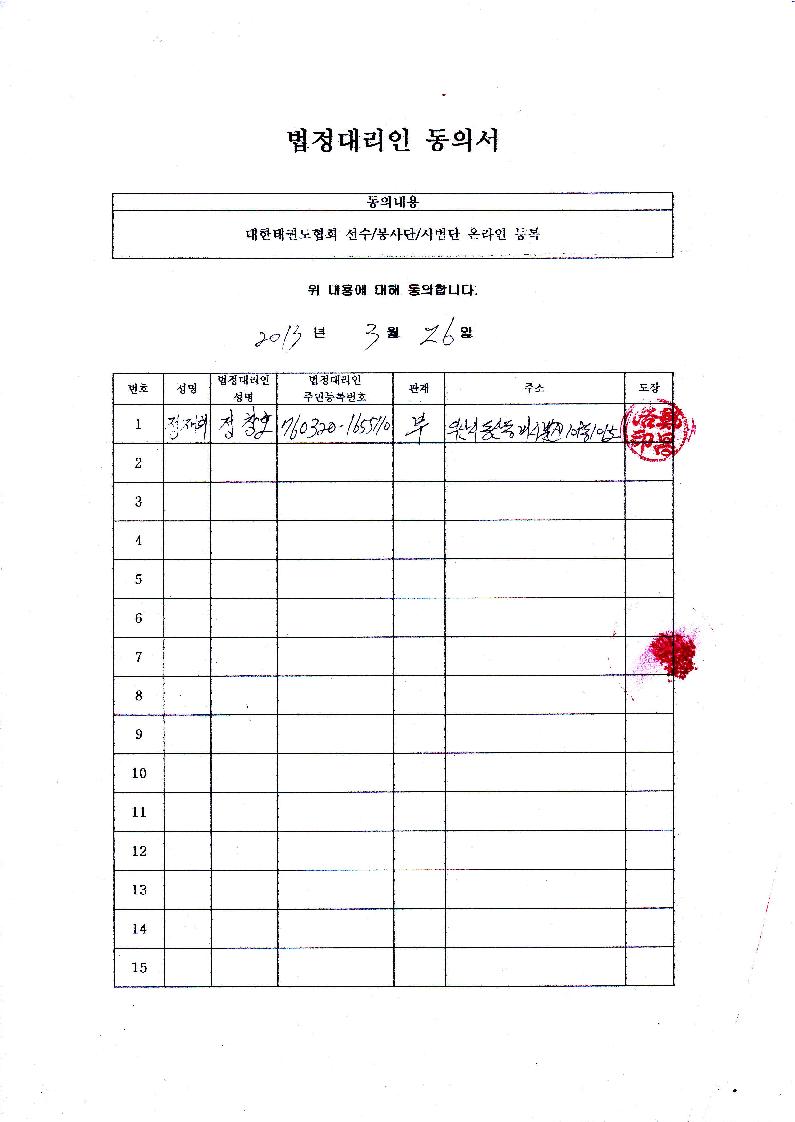 법정대리인 동의서
동의내용
대한태권도협회 선수/봉사단/시범단 온라인 등록
위 내용에 대해 동의합니다.
2013 년 3 월 26 일
번호 성명 법정대리인 성명 법정대리인 주민등록번호 관계 주소 도장
1 760320-1655710 부
2
3
4
5
6
7
8
9
10
11
12
13
14
15